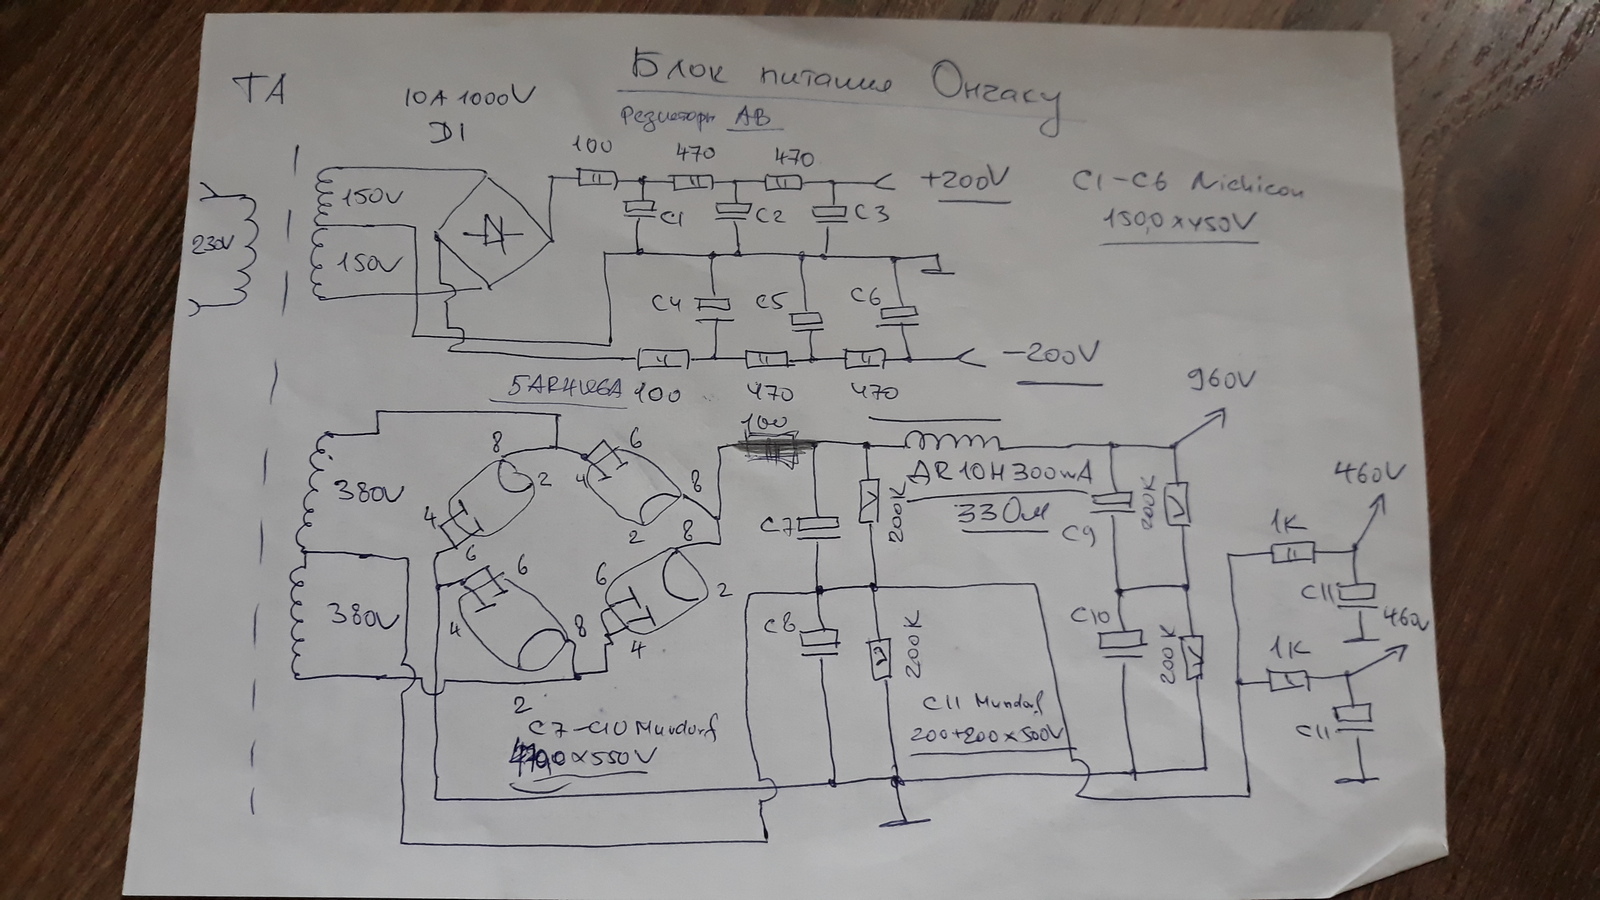 Блок питания Онгаку
ТА
10A 1000V
D1
Резисторы АВ
100
470
470
+200V
C1-C6 Nichicon
150,0x450V
150V
230V
150V
C1
C2
C3
C4
C5
C6
-200V
100
470
470
100
960V
380V
8
2
6
4
8
2
4
6
C7
200K
AR 10H 300mA
33Ом
C9
200K
460V
1K
C11
460V
380V
6
4
8
2
8
6
2
4
C8
200K
C10
200K
1K
C11
C7-C10 Mundorf
x550V
C11 Mundorf
200+200x500V